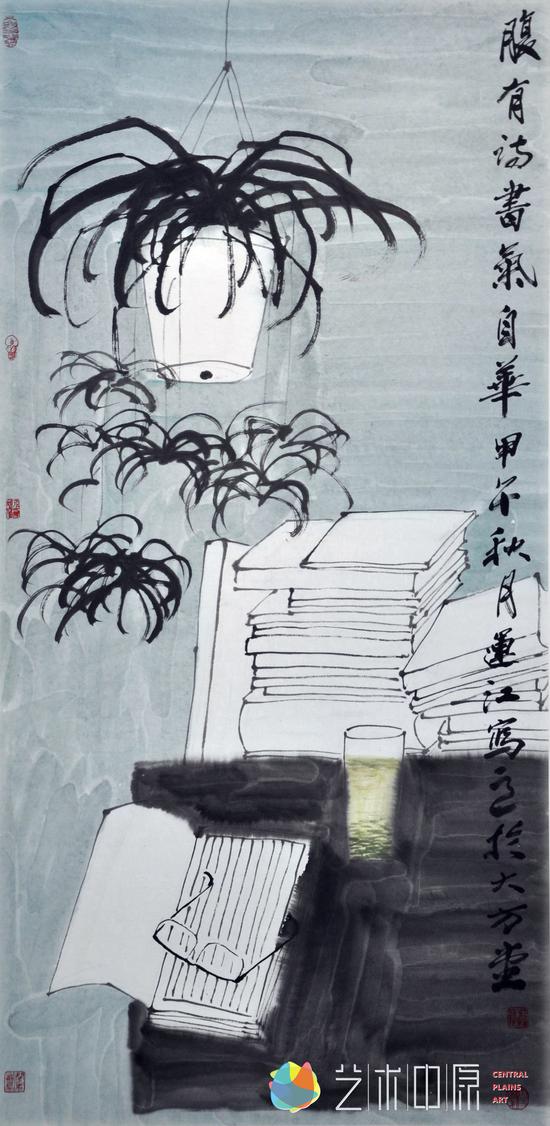 腹有诗書氣自華甲午秋月運江寫意於大方堂
艺术中原
CENTRAL
PLAINS
ART